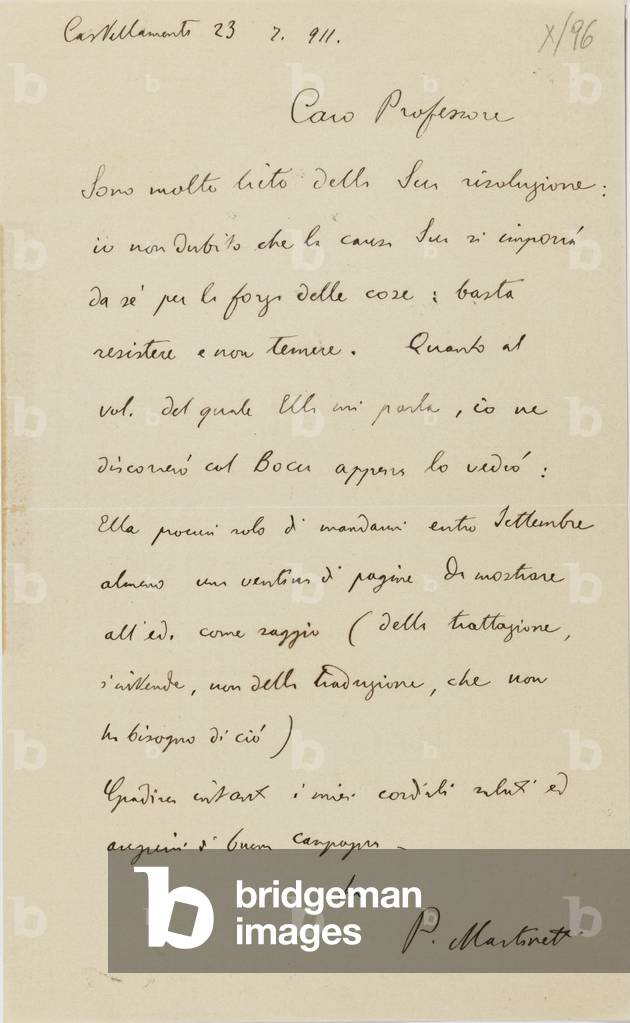 Castellamonte 23 7. 911.
X/96
Caro Professore
Sono molto lieto della Sua risoluzione:
io non dubito che la causa Sua si imporrà
da sé per la forza delle cose: basta
resistere e non temere. Quanto al
vol. del quale Ella mi parla, io ne
discorrerò col Bocca appena lo vedrò:
Ella procuri solo di mandarmi entro Settembre
almeno una ventina di pagine da mostrare
all'ed. come saggio (della trattazione,
s'intende, non della traduzione, che non
ha bisogno di ciò)
Gradisca i miei cordiali saluti ed
auguri di buona campagna
P. Martinetti
bridgeman
images